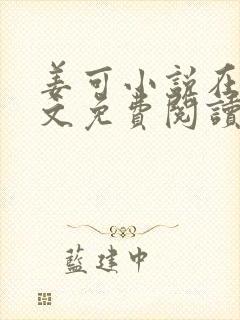 姜可小説在
文免費閱讀
藍建中